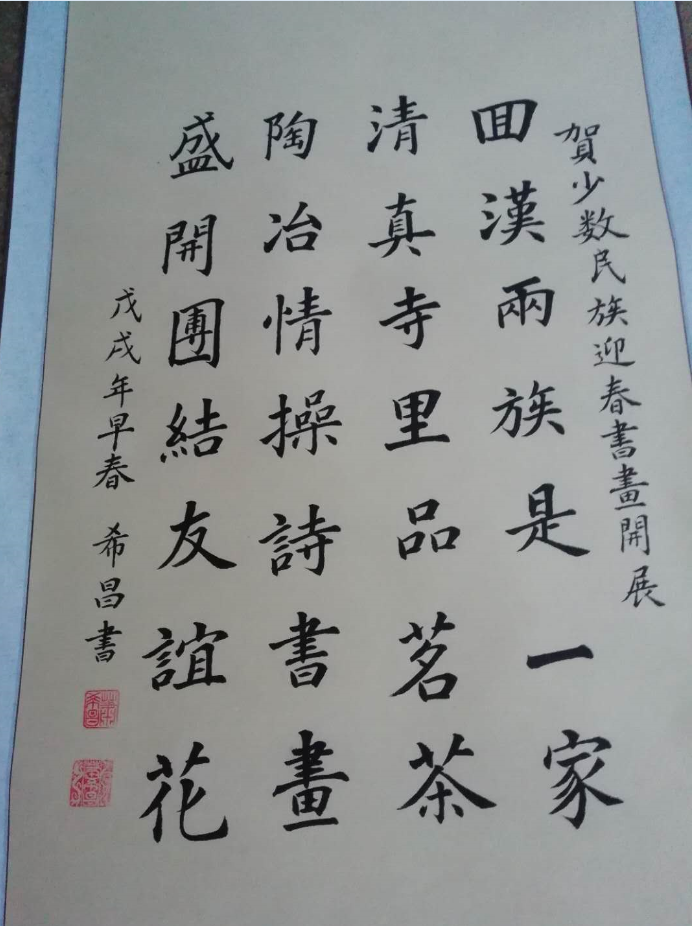 賀少数民族迎春書畫開展
囬漢兩族是一家
清真寺里品茗茶
陶冶情操詩書畫
盛開團結友誼花
戊戌年早春 希昌書